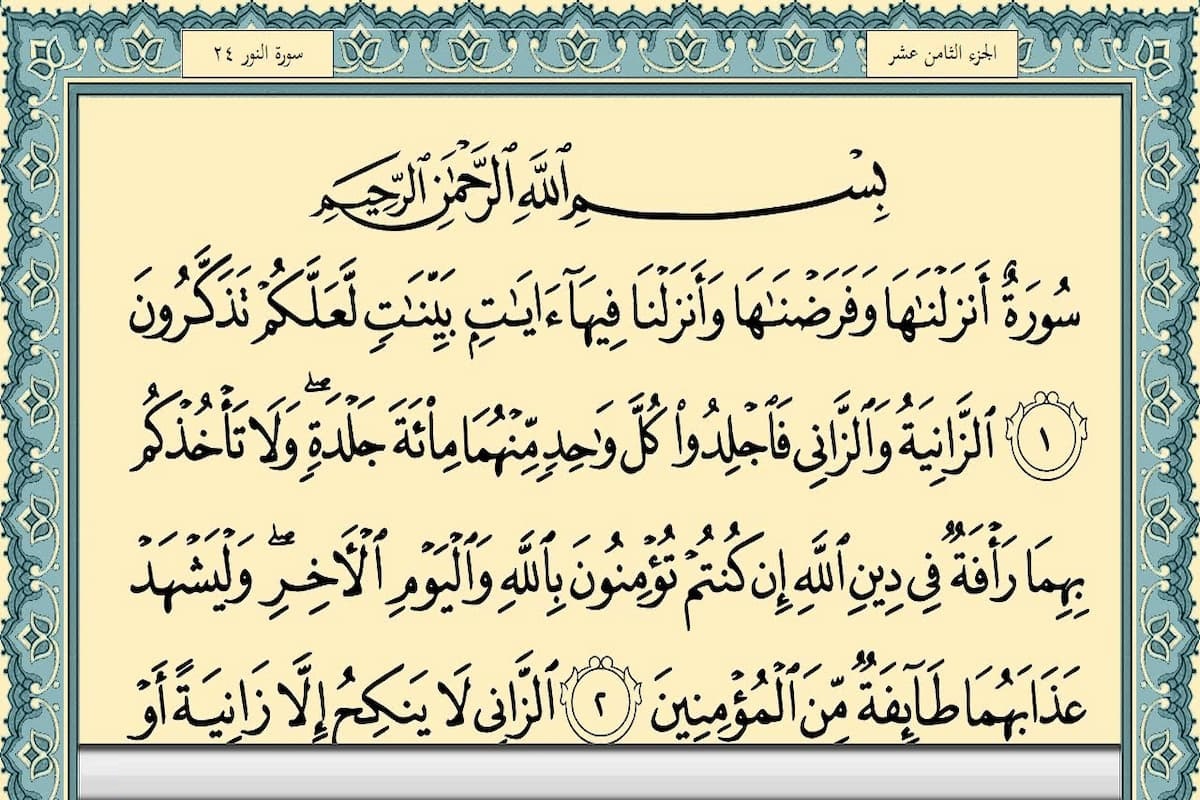 الجزء الثامن عشر
سورة النور ٢٤
بِسْمِ ٱللَّهِ ٱلرَّحْمَٰنِ ٱلرَّحِيمِ
سُورَةٌ أَنزَلْنَٰهَا وَفَرَضْنَٰهَا وَأَنزَلْنَا فِيهَآ ءَايَٰتٍۭ بَيِّنَٰتٍ لَّعَلَّكُمْ تَذَكَّرُونَ
١ ٱلزَّانِيَةُ وَٱلزَّانِى فَٱجْلِدُوا۟ كُلَّ وَٰحِدٍ مِّنْهُمَا مِا۟ئَةَ جَلْدَةٍ ۖ وَلَا تَأْخُذْكُم
بِهِمَا رَأْفَةٌ فِى دِينِ ٱللَّهِ إِن كُنتُمْ تُؤْمِنُونَ بِٱللَّهِ وَٱلْيَوْمِ ٱلْأَخِرِ ۖ وَلْيَشْهَدْ
عَذَابَهُمَا طَآئِفَةٌ مِّنَ ٱلْمُؤْمِنِينَ ٢ ٱلزَّانِى لَا يَنكِحُ إِلَّا زَانِيَةً أَوْ